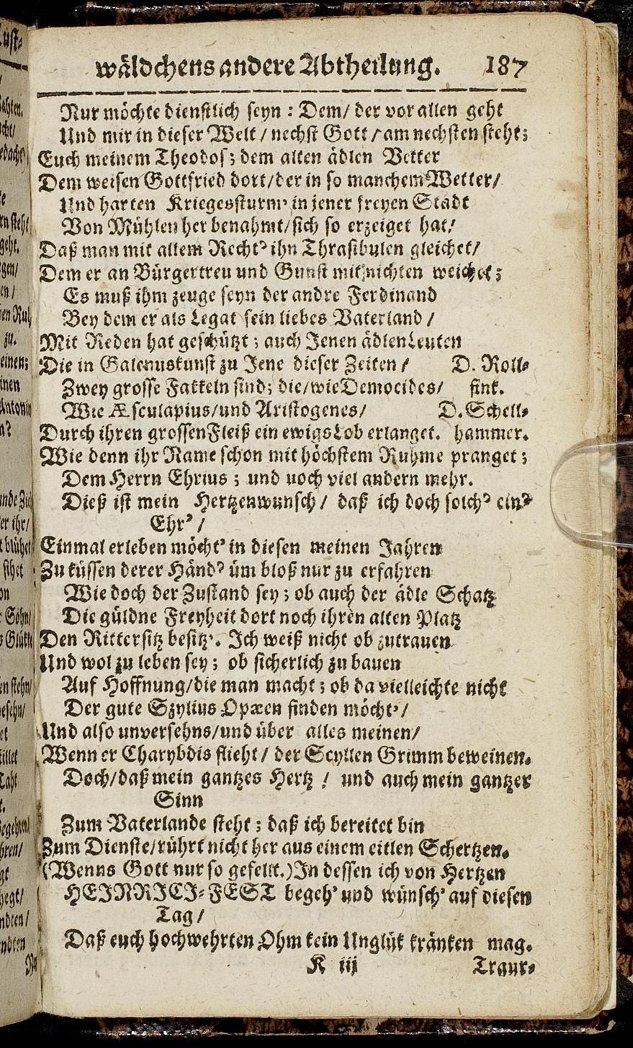 wäldchens andere Abtheilung. 187
Nur möchte dienstlich seyn : Dem / der vor allen geht
Und mir in dieser Welt / nechst Gott / am nechsten steht;
Euch meinem Theodos; dem alten ädlen Vetter
Dem weisen Gottfried dort / der in so manchem Wetter /
Und harten Kriegessturm' in jener freyen Stadt
Von Mühlen her benahmt / sich so erzeiget hat /
Daß man mit allem Recht' ihn Thrasibulen gleichet /
Dem er an Bürgertreu und Gunst mit nichten weichet;
Es muß ihm zeuge seyn der andre Ferdinand
Bey dem er als Legat sein liebes Vaterland /
Mit Reden hat geschützt; auch Jenen ädlen Leuten
Die in Galenuskunst zu Jene dieser Zeiten / D. Roll-
Zwey grosse Fakkeln sind; die / wie Democides / fink.
Wie Æsculapius / und Aristogenes / D. Schell-
Durch ihren grossen Fleiß ein ewigs Lob erlanget. hammer.
Wie denn ihr Name schon mit höchstem Ruhme pranget;
Dem Herrn Ehrius; und noch viel andern mehr.
Dieß ist mein Hertzenwunsch / daß ich doch solch' ein'
Ehr' /
Einmal erleben möcht' in diesen meinen Jahren
Zu küssen derer Händ' üm bloß nur zu erfahren
Wie doch der Zustand sey; ob auch der ädle Schatz
Die güldne Freyheit dort noch ihren alten Platz
Den Rittersitz besitz'. Ich weiß nicht ob zutrauen
Und wol zu leben sey; ob sicherlich zu bauen
Auf Hoffnung / die man macht; ob da vielleichte nicht
Der gute Szylius Opæen finden möcht' /
Und also unversehns / und über alles meinen /
Wenn er Charybdis flieht / der Scyllen Grimm beweinen.
Doch / daß mein gantzes Hertz / und auch mein gantzer
Sinn
Zum Vaterlande steht; daß ich bereitet bin
Zum Dienste / rührt nicht her aus einem eitlen Schertzen.
(Wenns Gott nur so gefellt.) In dessen ich von Hertzen
HEINRICI-FEST begeh' und wünsch' auf diesen
Tag /
Daß euch hochwehrten Ohm kein Unglük kränken mag.
K iij
Traur-